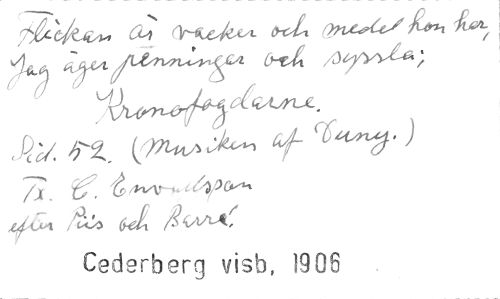 Flickan är vacker och medel hon har,
Jag äger penningar och syssla;
Kronofogdarne.
Sid. 52. (Musiken af Duny.)
Tx. C. Envallsson
efter Piis och Barré.
Cederberg visb, 1906